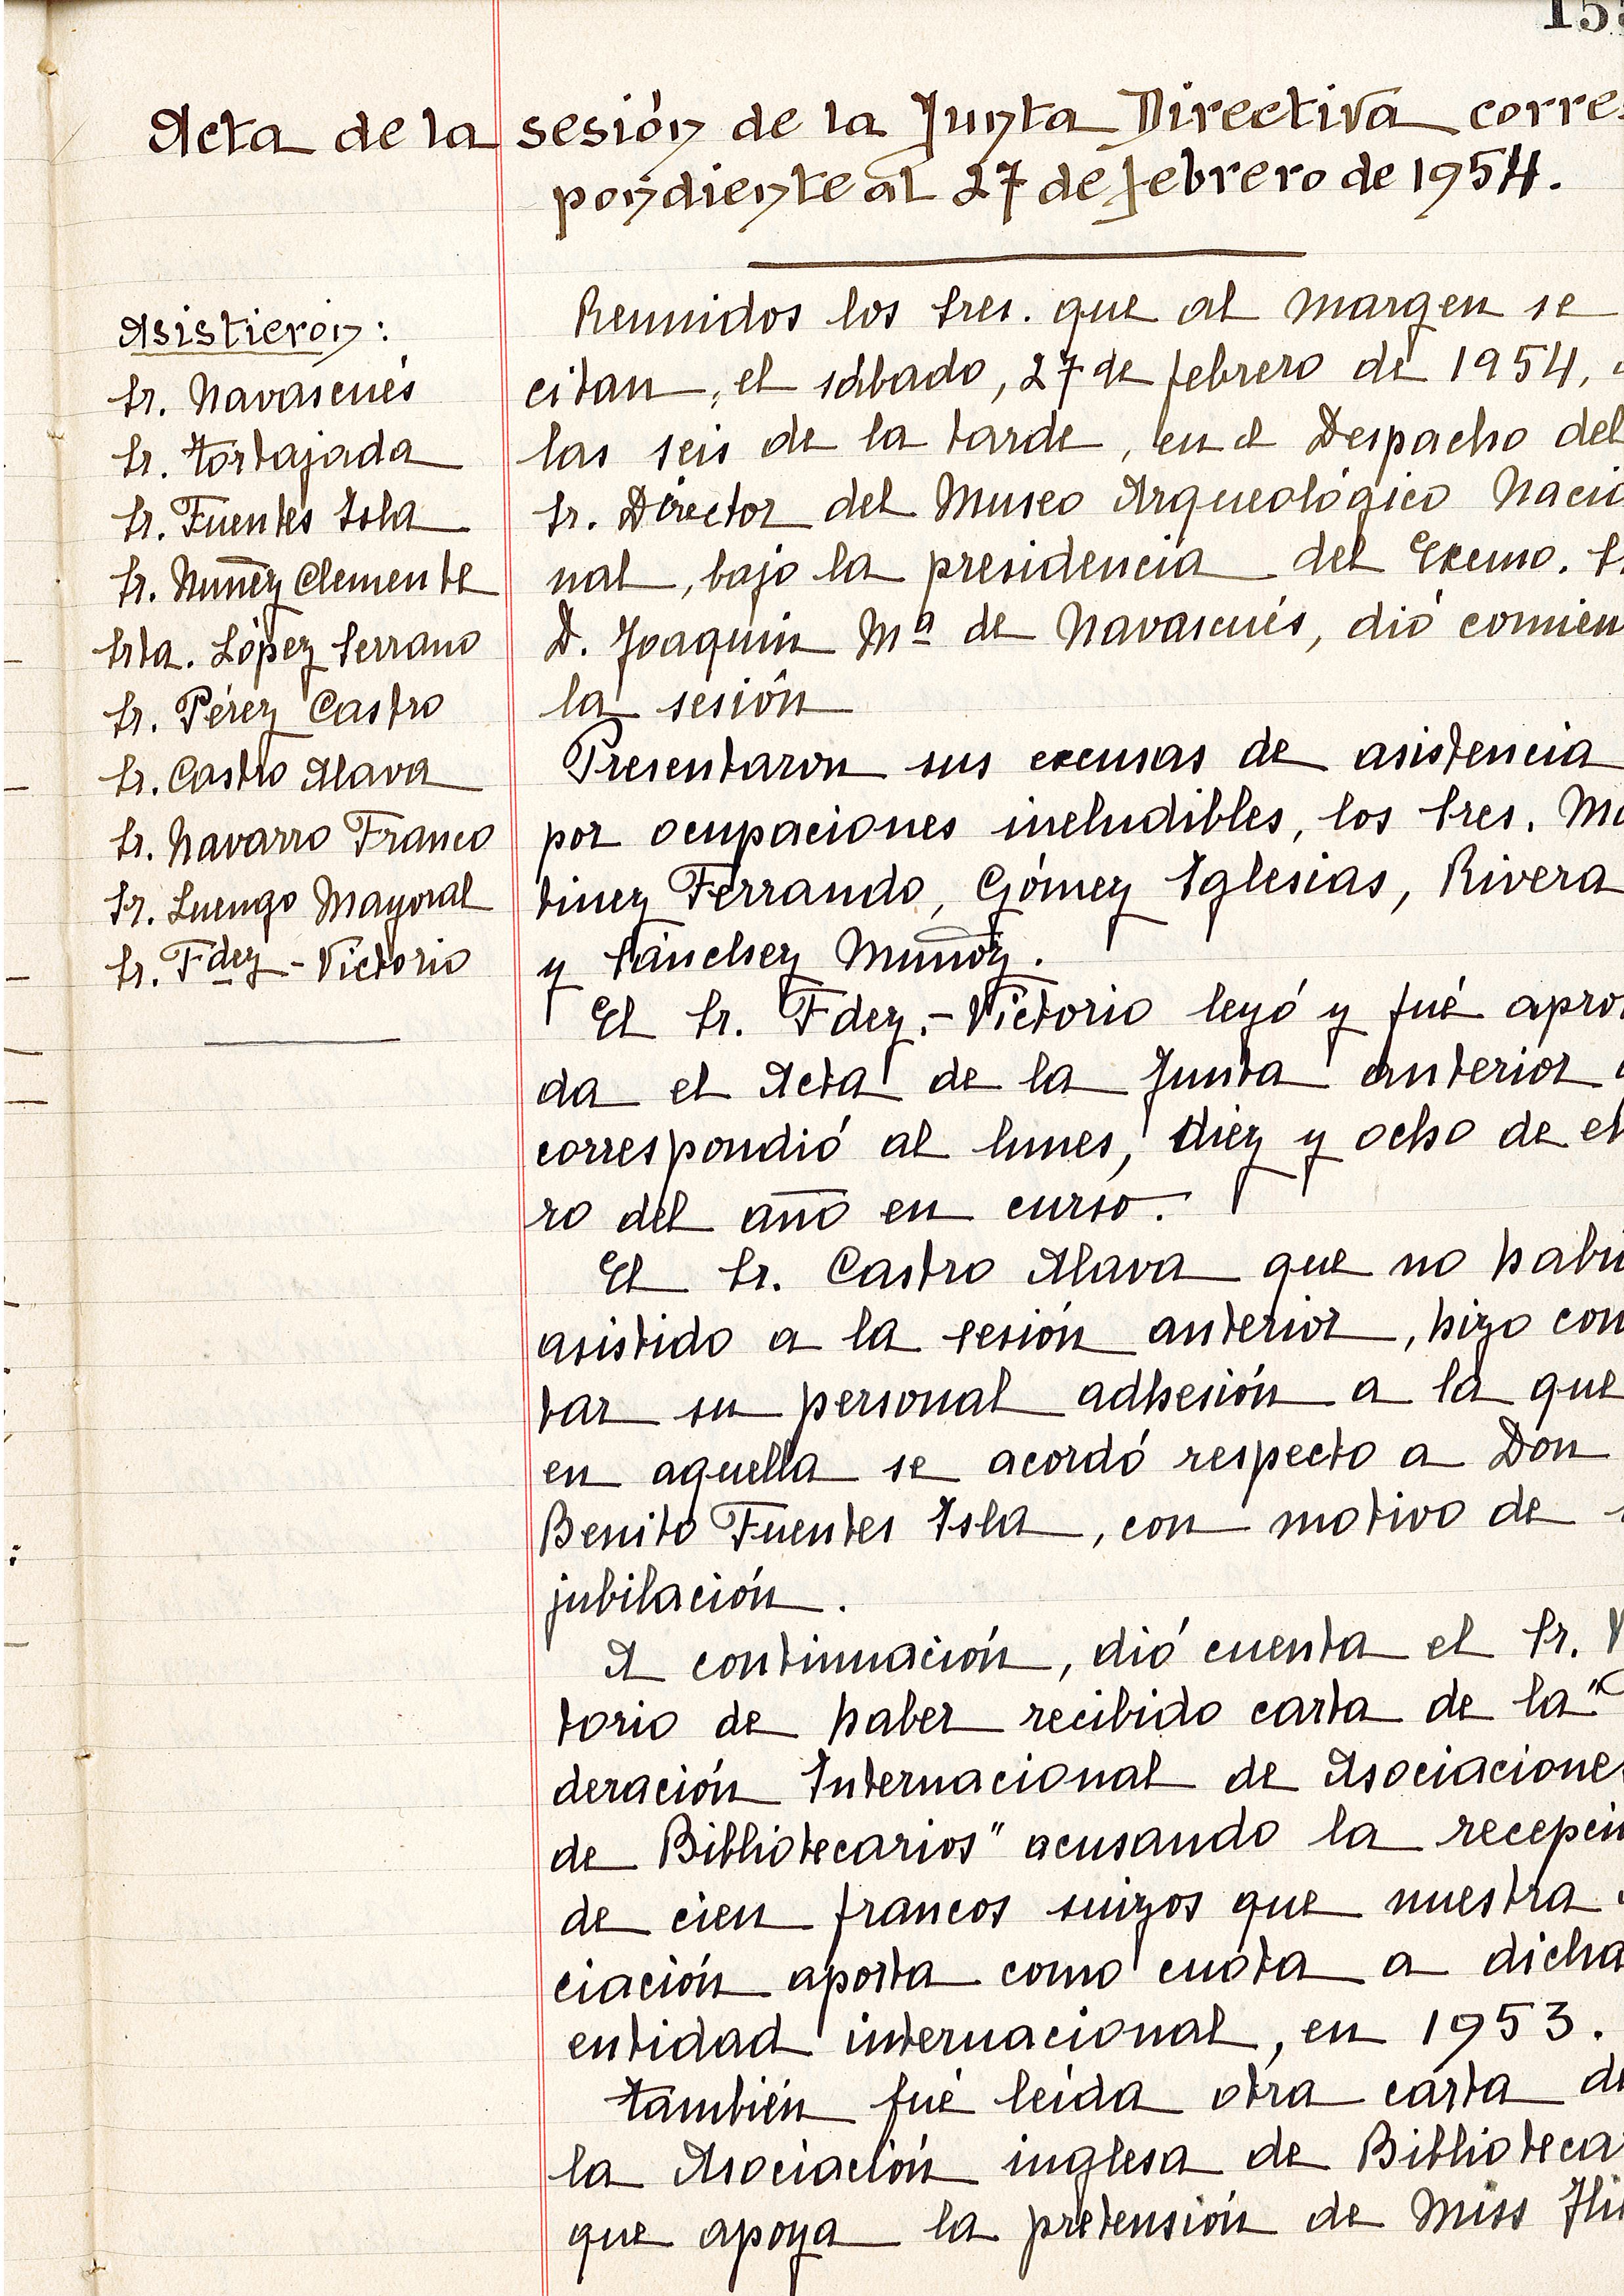 15
Acta de la sesión de la Junta Directiva corres
pondiente al 27 de febrero de 1954.
Asistieron:
Sr. Navascués
Sr. Tortajada
Sr. Fuentes Isla
Sr. Nuñez Clemente
Srta. López Serrano
Sr. Pérez Castro
Sr. Castro Alava
Sr. Navarro Franco
Sr. Luengo Mayoral
Sr. Fdez-Victorio
Reunidos los Sres. que al margen se
citan, el sábado, 27 de febrero de 1954,
las seis de la tarde, en el Despacho del
Sr. Director del Museo Arqueológico Nacio
nal, bajo la presidencia del Excmo. S
D. Joaquín Mª de Navascués, dió comien
la sesión
Presentaron sus excusas de asistencia
por ocupaciones ineludibles, los Sres. Ma
tinez Ferrando, Gómez Iglesias, Rivera
y Sánchez Muñoz.
El Sr. Fdez.-Victorio leyó y fué apro
da el Acta de la Junta anterior
correspondió al lunes, diez y ocho de e
ro del año en curso.
El Sr. Castro Alava que no habi
asistido a la sesión anterior, hizo con
tar su personal adhesión a la que
en aquella se acordó respecto a Don
Benito Fuentes Isla, con motivo de
jubilación.
A continuación, dió cuenta el Sr. V
torio de haber recibido carta de la "
deración Internacional de Asociaciones
de Bibliotecarios" acusando la recepci
de cien francos suizos que nuestra
ciación aporta como cuota a dicha
entidad internacional, en 1953.
También fué leida otra carta de
la Asociación inglesa de Biblioteca
que apoya la pretensión de Miss